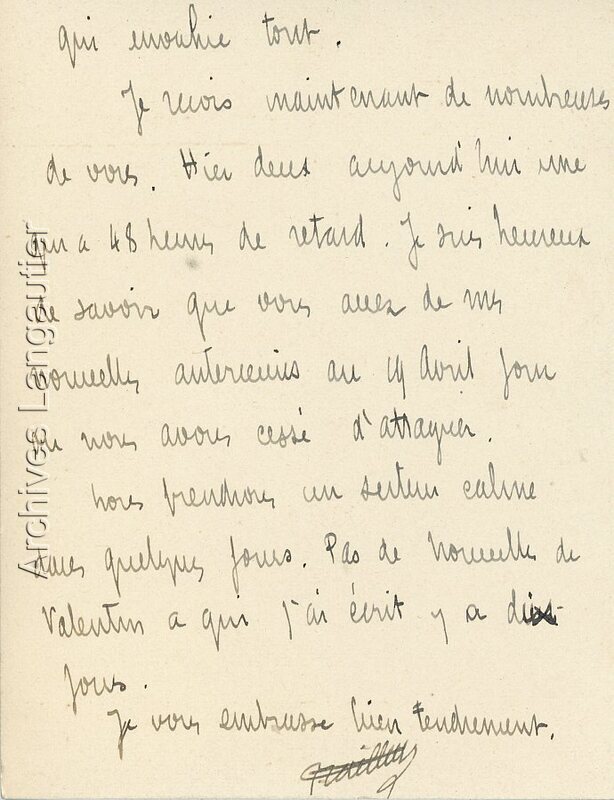 qui envahie tout.
Je reçois maintenant de nombreuses
de vous. Hier deux aujourd'hui une
qui a 48 heures de retard. Je suis heureux
de savoir que vous avez de mes
nouvelles anterieures au 19 Avril jour
ou nous avons cessé d'attaquer.
Nous prendrons un secteur calme
dans quelques jours. Pas de nouvelles de
Valentin a qui j'ai écrit y a dix
jours.
Je vous embrasse bien tendrement.
Archives Langautier